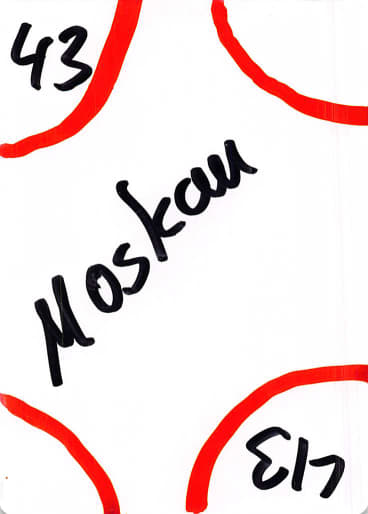 43
Moskau
43